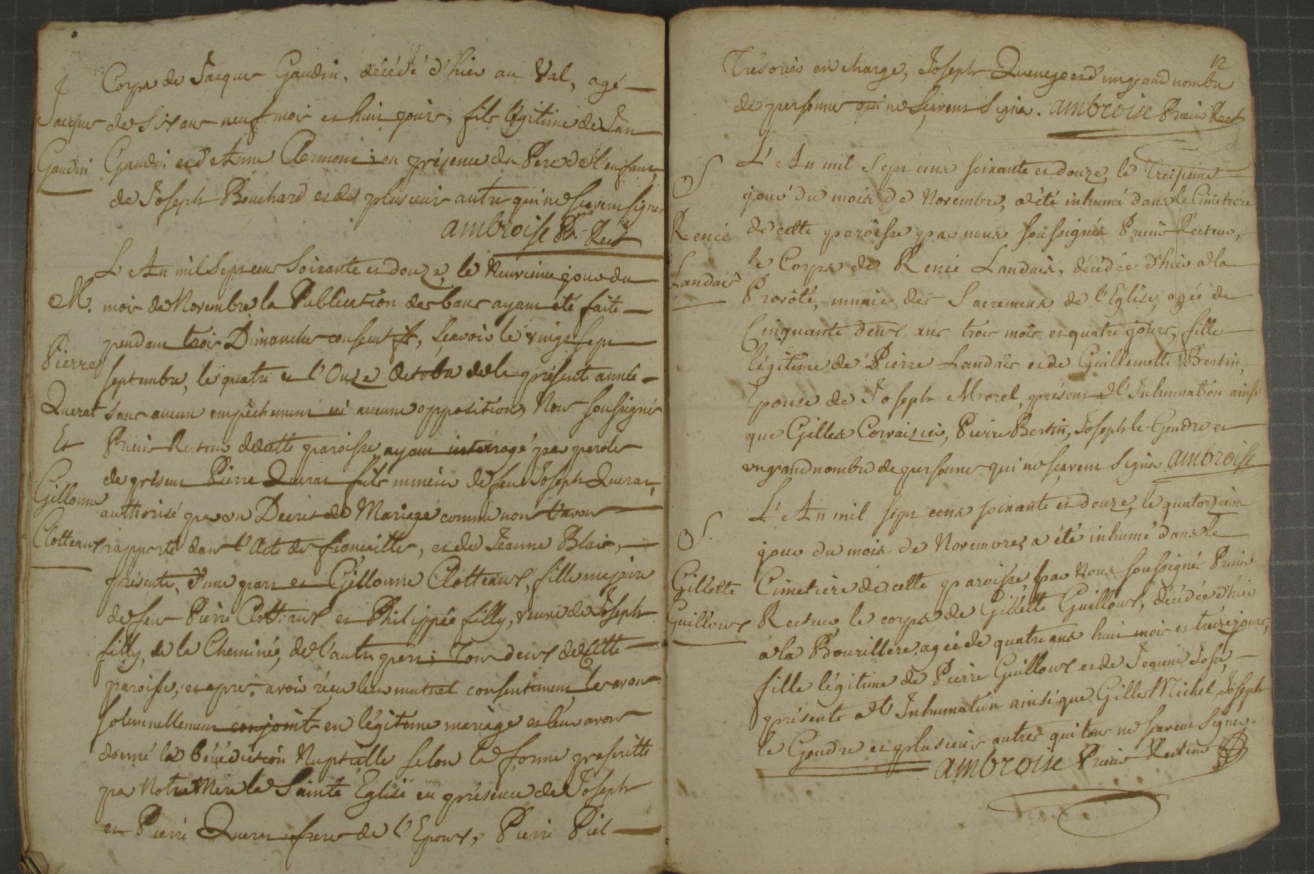 Corps de Jacques Gaudin, décédé d'hier au Val, agé
Jacques
de six ans neuf mois et huit jours, fils légitime de Jan
Gaudin
Gaudin et d'Anne Clermont en présence du Pere de l'enfant
de Joseph Bouchard et de plusieurs autre qui ne scavent signer
ambroise Pr. Rect
L'An mil sept cens soixante et douze, le Neuvieme jour du
M.
mois de Novembre la Publication des bans ayant été faite
pendant trois Dimanches consecutifs, scavoir le vingt sept
Pierre
septembre, le quatre et l'Onze Octobre de la présente année
Querat
sans aucun empêchement ni aucune opposition, Nous soussigné
Et
Prieur Recteur de cette paroisse, ayant interrogé par parole
de présent Pierre Querat fils mineur de feu Joseph Querat,
Gillonne
authorisé par un Decret de Mariage comme nous l'avons
Clotteaux
rapporté dans l'Acte de fiancailles, et de Jeanne Blais,
présente, d'une part et Gillonne Clotteaux, fille majeure
de feux Pierre Clotteaux et Philippée filly, veuve de Joseph
filly, de la Cheminée, de l'autre part; Tous deux de cette
paroisse, et aprés avoir réçu leur mutuel consentement les avons
solennellement conjoint en légitime mariage et leur avons
donné la bénédiction Nuptialle selon la forme prescritte
par Notre Mere la Sainte Eglise en présence de Joseph
et Pierre Querat freres de l'Epoux, Pierre Piel
12
Trésorier en charge, Joseph et d'un grand nombre
de personnes qui ne scavent signer. ambroise Prieur Rect
L'An mil sept cens soixante et douze, le Treizieme
S.
jour du mois de Novembre, a été inhumé dans le Cimetiere
Renée
de cette paroisse par nous soussigné Prieur Recteur,
Landais
le Corps de Renée Landais, décédée d'hier a la
Provôté, munie des Sacremens de l'Eglise, agée de
Cinquante deux ans trois mois et quatre jours, fille
légitime de Pierre Landais et de Guillemette Bertin,
Epouse de Joseph Morel, présent a l'Inhumation ainsi
que Gilles Corvaisier, Pierre Bertin, Joseph le Gendre et
un grand nombre de personnes qui ne scavent signer ambroise
L'An mil sept cens soixante et douze, le quatorzieme
S.
jour du mois de Novembre a été inhumé dans le
Gillette
Cimetiere de cette paroisse par Nous soussigné Prieur
Guilloux
Recteur le corps de Gillette Guilloux, décédée d'hier
a la Bourillere, agée de quatre ans huit mois et treize jours,
fille légitime de Pierre Guilloux et de Jeanne
présente a l'Inhumation ainsi que Gille Michel, Joseph
le Gendre et plusieurs autres qui tous ne scavent signer.
ambroise Prieur Recteur